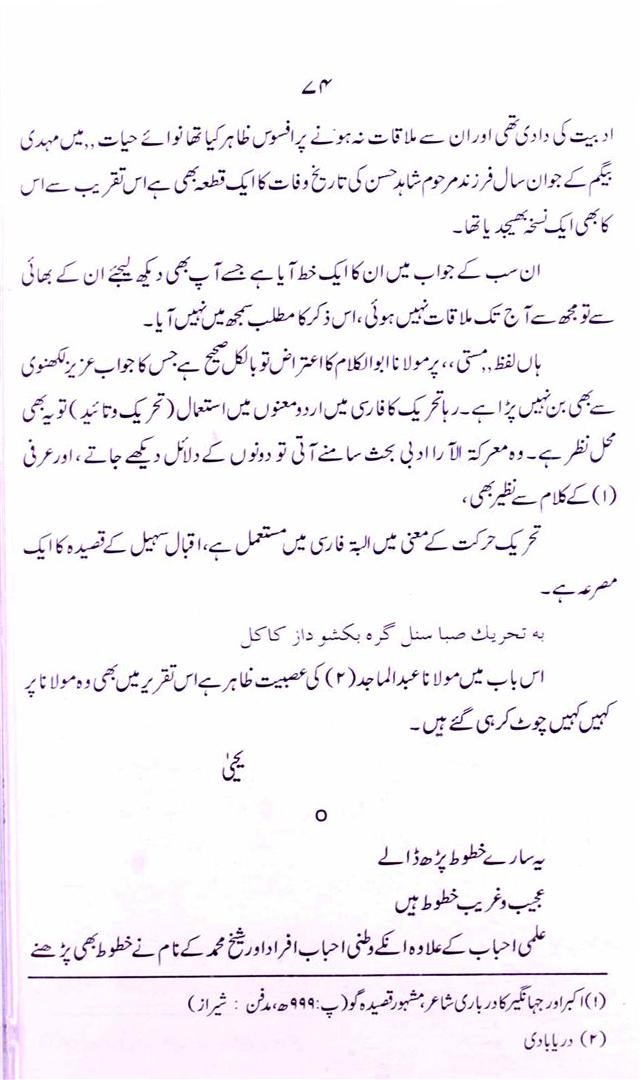 ۷۴
ادبیت کی دادی تھی اور ان سے ملاقات نہ ہونے پر افسوس ظاہر کیا تھا نوائے حیات ,,میں مہدی
بیگم کے جواں سال فرزند مرحوم شاہد حسن کی تاریخ وفات کا ایک قطعہ بھی ہے اس تقریب سے اس
کا بھی ایک نسخہ بھیجد یا تھا۔
ان سب کے جواب میں ان کا ایک خط آیا ہے جسے آپ بھی دیکھ لیجئے ان کے بھائی
سے تو مجھ سے آج تک ملاقات نہیں ہوئی، اس ذکر کا مطلب سمجھ میں نہیں آیا۔
ہاں لفظ ,,مستی،، پر مولانا ابوالکلام کا اعتراض تو بالکل صحیح ہے جس کا جواب عزیز لکھنوی
سے بھی بن نہیں پڑا ہے۔ رہا تحریک کا فارسی میں اردو معنوں میں استعمال (تحریک و تائید) تو یہ بھی
محل نظر ہے۔ وہ معرکۃ الآرا ادبی بحث سامنے آتی تو دونوں کے دلائل دیکھے جاتے، اور عرفی
(۱) کے کلام سے نظیر بھی،
تحریک حرکت کے معنی میں البتہ فارسی میں مستعمل ہے، اقبال سہیل کے قصیدہ کا ایک
مصرعہ ہے۔
به تحريك صبا سنل گره بكشو داز كاكل
اس باب میں مولانا عبدالماجد (۲) کی عصبیت ظاہر ہے اس تقریر میں بھی وہ مولانا پر
کہیں کہیں چوٹ کر ہی گئے ہیں۔
یحییٰ
o
یہ سارے خطوط پڑھ ڈالے
عجیب و غریب خطوط ہیں
علمی احباب کے علاوہ انکے وطنی احباب افراد اور شیخ محمد کے نام نے خطوط بھی پڑھنے
(۱) اکبر اور جہانگیر کا درباری شاعر، مشہور قصیدہ گو (پ: ۹۹۹ھ، مدفن : شیراز)
(۲) دریابادی